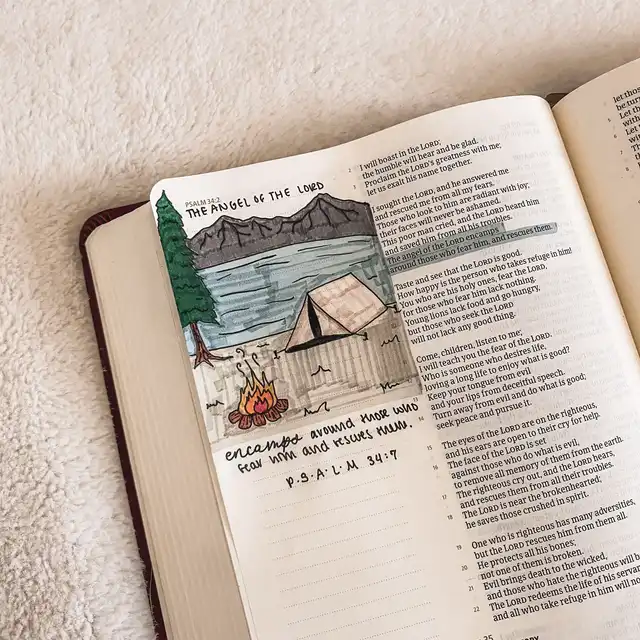 PSALM 34:2
THE ANGEL OF THE LORD
encamps around those who
fear him and rescues them.
P.S.A.L.M 34:7
2 I will boast in the LORD;
the humble will hear and be glad.
3 Proclaim the LORD's greatness with me;
let us exalt his name together.
I sought the LORD, and he answered me
and rescued me from all my fears.
Those who look to him are radiant with joy;
their faces will never be ashamed.
This poor man cried, and the LORD heard him
and saved him from all his troubles.
The angel of the LORD encamps
around those who fear him, and rescues them.
Taste and see that the LORD is good.
How happy is the person who takes refuge in him!
You who are his holy ones, fear the LORD,
for those who fear him lack nothing.
Young lions lack food and go hungry,
but those who seek the LORD
will not lack any good thing.
Come, children, listen to me;
I will teach you the fear of the LORD.
Who is someone who desires life,
loving a long life to enjoy what is good?
13 Keep your tongue from evil
and your lips from deceitful speech.
14 Turn away from evil and do what is good;
seek peace and pursue it.
15 The eyes of the LORD are on the righteous,
and his ears are open to their cry for help.
16 The face of the LORD is set
against those who do what is evil,
to remove all memory of them from the earth.
17 The righteous cry out, and the LORD hears,
and rescues them from all their troubles.
18 The LORD is near the brokenhearted;
he saves those crushed in spirit.
19 One who is righteous has many adversities,
but the LORD rescues him from them all.
20 He protects all his bones;
not one of them is broken.
21 Evil brings death to the wicked,
and those who hate the righteous will be
22 The LORD redeems the life of his servan
and all who take refuge in him will no
35
let thos
be tur
5 Let th
with
6 Let
w